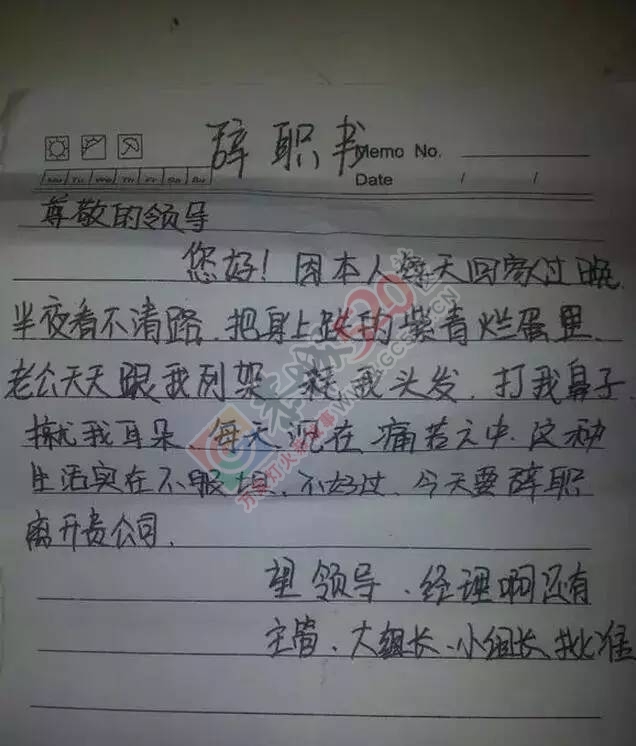 辞职书
Memo No.
Date / /
Mo Tu We Th Fr Sa Su
尊敬的领导
您好！因本人每天回家过晚.
半夜看不清路.把身上跌的紫青烂蛋里.
老公天天跟我列架 踩我头发.打我鼻子.
揪我耳朵、每天泥在痛苦之中.这种
生活实在不服担、不好过、今天要辞职
离开贵公司.
望领导、经理啊还有
主管、大组长、小组长批准